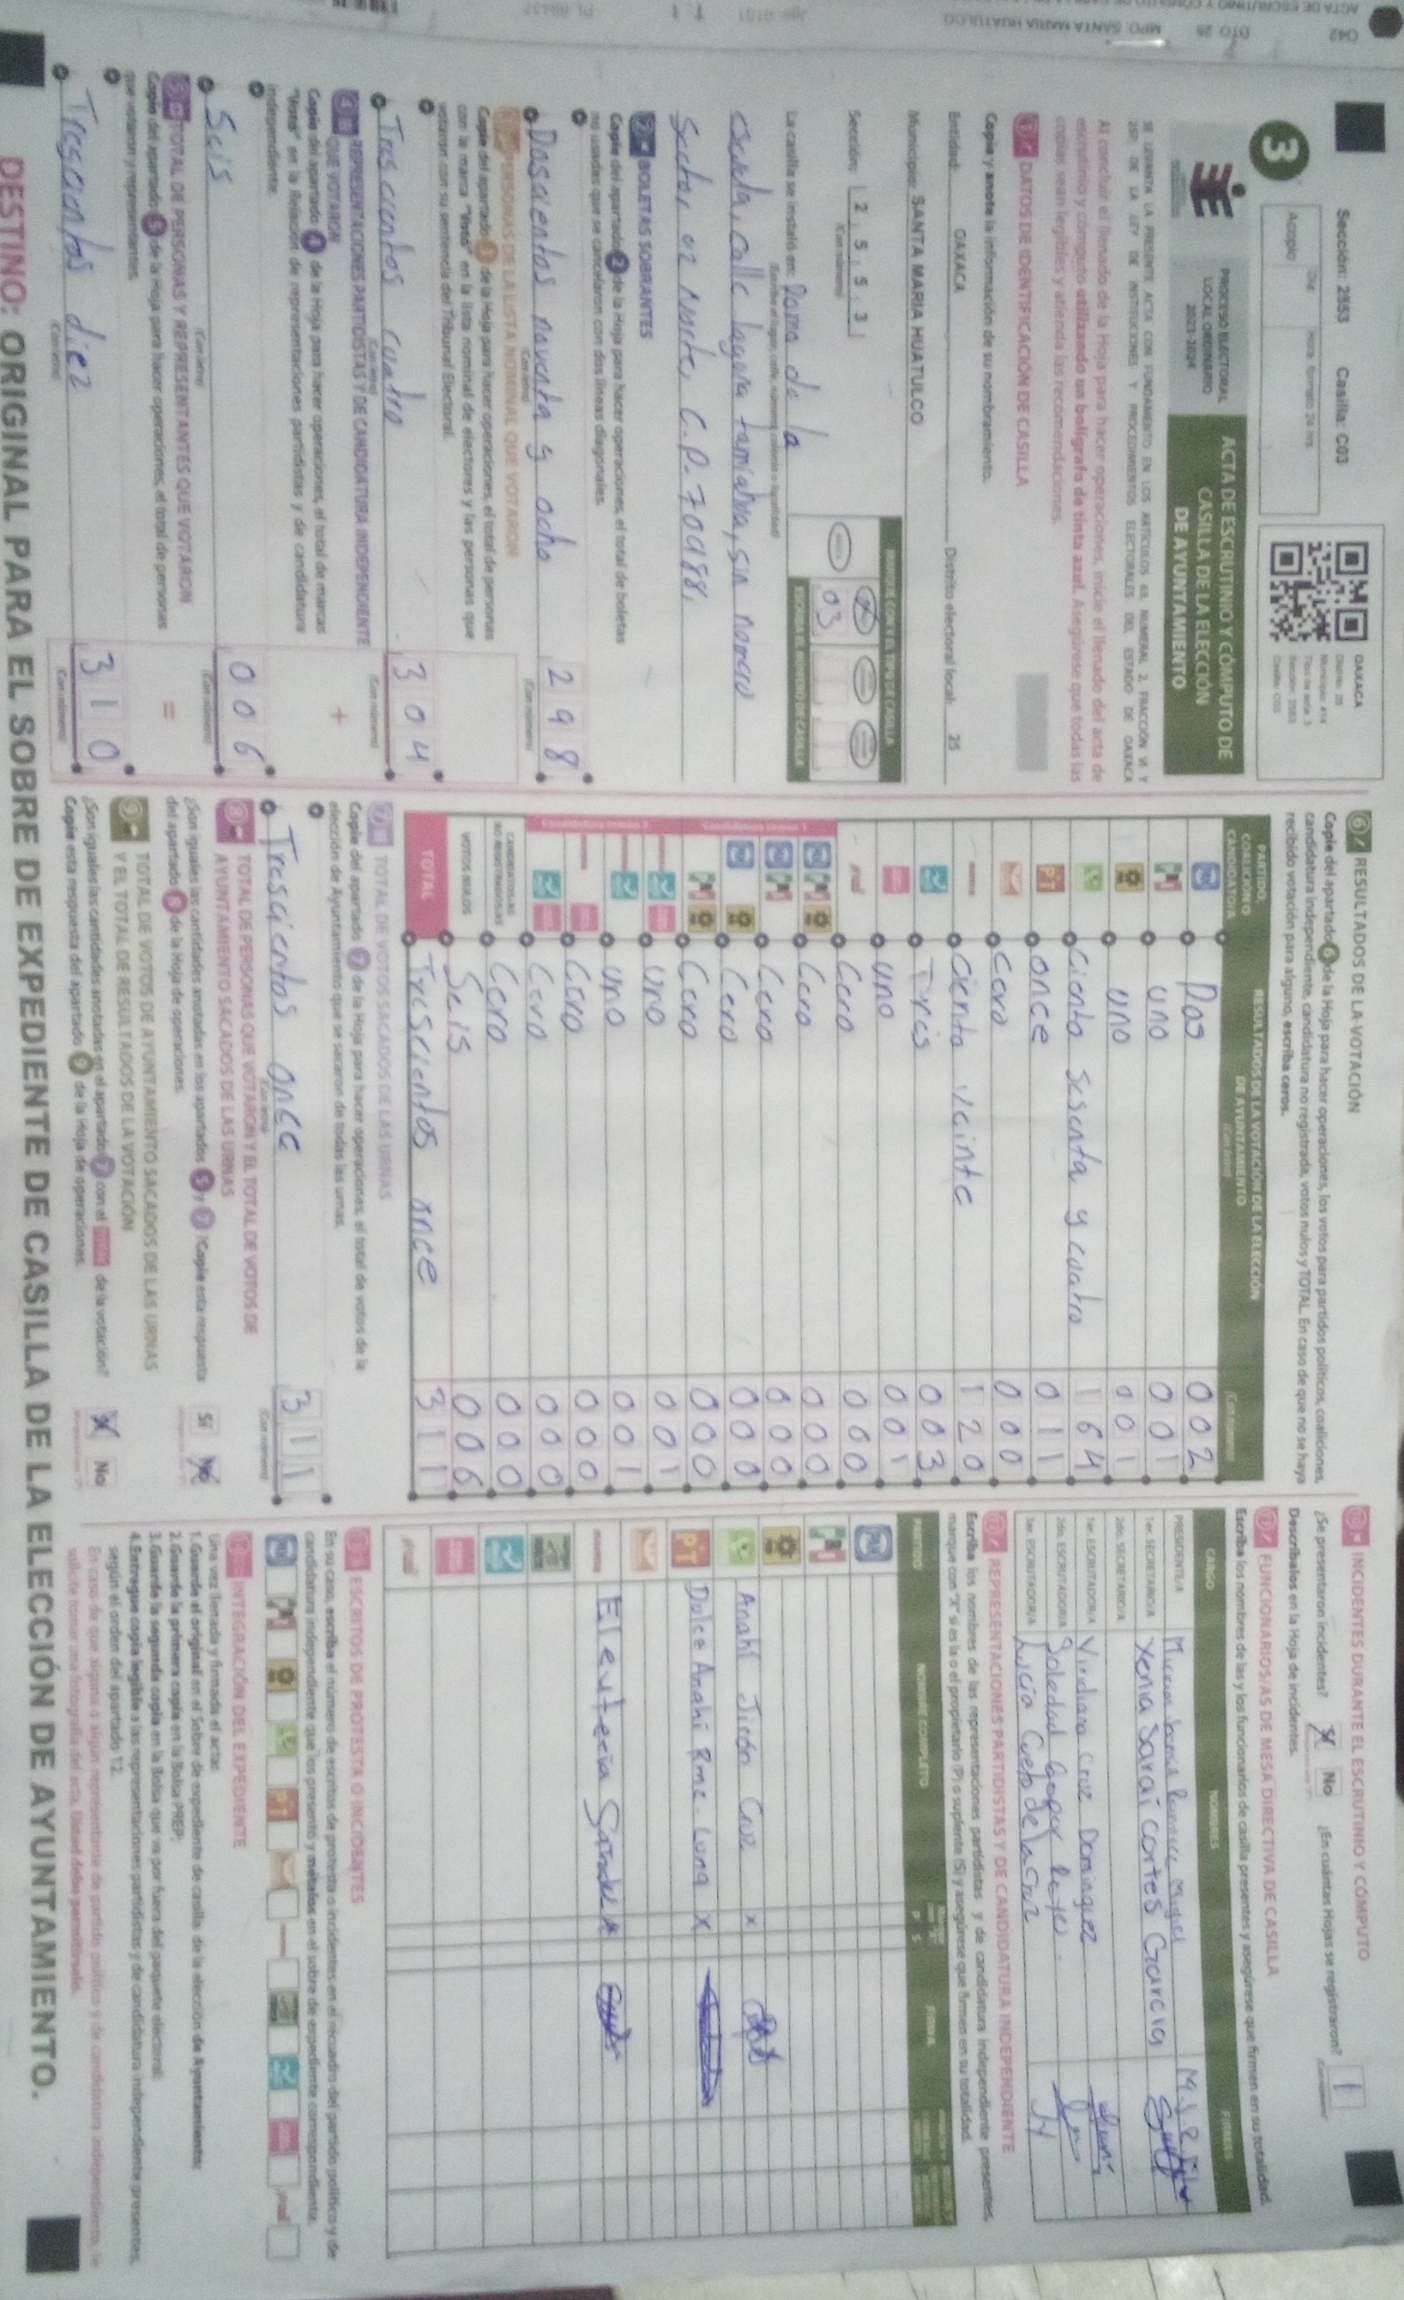 Sección: 2553 Casilla: C03
3
Acopio
PROCESO ELECTORAL
LOCAL ORDINARIO
2023-2024
ACTA DE ESCRUTINIO Y CÓMPUTO DE
CASILLA DE LA ELECCIÓN
DE AYUNTAMIENTO
OAXACA
SE LEVANTA LA PRESENTE ACTA CON FUNDAMENTO EN LOS ARTÍCULOS
Al concluir el llenado de la Hoja para hacer operaciones, inicie el llenado del acta de
escrutinio y cómputo utilizando un bolígrafo de tinta azul. Asegúrese que todas las
copias sean legibles y atienda las recomendaciones.
DATOS DE IDENTIFICACIÓN DE CASILLA
Copie y anote la información de su nombramiento.
Entidad: OAXACA Distrito electoral local: 25
Municipio: SANTA MARIA HUATULCO
Sección: 2 5 5 3
MARQUE CON X EL TIPO DE CASILLA
03
ESCRIBA EL NÚMERO DE CASILLA
La casilla se instaló en:
escuela, calle laguna
Sector, C.P. 70988,
BOLETAS SOBRANTES
Copie del apartado 2 de la Hoja para hacer operaciones, el total de boletas
no usadas que se cancelaron con dos líneas diagonales.
Doscientos noventa y ocho 298
PERSONAS DE LA LISTA NOMINAL QUE VOTARON
Copie del apartado de la Hoja para hacer operaciones, el total de personas
con la marca "Votó" en la lista nominal de electores y las personas que
votaron con su sentencia del Tribunal Electoral.
Trescientos cuatro 304
REPRESENTACIONES PARTIDISTAS Y DE CANDIDATURA INDEPENDIENTE
QUE VOTARON
Copie del apartado 4 de la Hoja para hacer operaciones, el total de marcas
"Votó" en la Relación de representaciones partidistas y de candidatura
independiente.
Seis 006
TOTAL DE PERSONAS Y REPRESENTANTES QUE VOTARON
Copie del apartado 5 de la Hoja para hacer operaciones, el total de personas
que votaron y representantes.
Trescientos diez 310
RESULTADOS DE LA VOTACIÓN
Copie del apartado 6 de la Hoja para hacer operaciones, los votos para partidos políticos, coaliciones,
candidatura independiente, candidatura no registrada, votos nulos y TOTAL. En caso de que no se haya
recibido votación para alguno, escriba ceros.
PARTIDO,
COALICIÓN O
CANDIDATURA
RESULTADOS DE LA VOTACIÓN DE LA ELECCIÓN
DE AYUNTAMIENTO
Dos 002
uno 001
uno 001
Ciento sesenta y cuatro 164
once 011
cero 000
ciento veinte 120
Tres 003
uno 001
Cero 000
Cero 000
Cero 000
Cero 000
Cero 000
uno 001
uno 001
Cero 000
Cero 000
Cero 000
VOTOS NULOS Seis 006
TOTAL Trescientos once 311
TOTAL DE VOTOS SACADOS DE LAS URNAS
Copie del apartado 7 de la Hoja para hacer operaciones, el total de votos de la
elección de Ayuntamiento que se sacaron de todas las urnas.
Trescientos once 311
TOTAL DE PERSONAS QUE VOTARON Y EL TOTAL DE VOTOS DE
AYUNTAMIENTO SACADOS DE LAS URNAS
¿Son iguales las cantidades anotadas en los apartados 5 y 7? Copie esta respuesta
del apartado 8 de la Hoja de operaciones.
Sí No
TOTAL DE VOTOS DE AYUNTAMIENTO SACADOS DE LAS URNAS
Y EL TOTAL DE RESULTADOS DE LA VOTACIÓN
¿Son iguales las cantidades anotadas en el apartado 7 con el TOTAL de la votación?
Copie esta respuesta del apartado 9 de la Hoja de operaciones.
Sí No
INCIDENTES DURANTE EL ESCRUTINIO Y CÓMPUTO
¿Se presentaron incidentes? Sí No ¿En cuántas Hojas se registraron? 1
Descríbalos en la Hoja de incidentes.
FUNCIONARIOS/AS DE MESA DIRECTIVA DE CASILLA
Escriba los nombres de las y los funcionarios de casilla presentes y asegúrese que firmen en su totalidad.
CARGO NOMBRES FIRMES
PRESIDENTE/A
1er. SECRETARIO/A Xenia Sarai Cortes Garcia
2do. SECRETARIO/A
1er. ESCRUTADOR/A Viridiana Cruz Dominguez
2do. ESCRUTADOR/A Soledad
3er. ESCRUTADOR/A Lucía Cueto de la Cruz
REPRESENTACIONES PARTIDISTAS Y DE CANDIDATURA INDEPENDIENTE
Escriba los nombres de las representaciones partidistas y de candidatura independiente presentes,
marque con "X" si es la o el propietario (P) o suplente (S) y asegúrese que firmen en su totalidad.
PARTIDO NOMBRE COMPLETO
Anahí Cruz X
PT Dulce Anahí Luna X
Eleuteria
ESCRITOS DE PROTESTA O INCIDENTES
En su caso, escriba el número de escritos de protesta o incidentes en el recuadro del partido político y de
candidatura independiente que los presentó y métalos en el sobre de expediente correspondiente.
INTEGRACIÓN DEL EXPEDIENTE
Una vez llenada y firmada el acta:
1. Guarde el original en el Sobre de expediente de casilla de la elección de Ayuntamiento;
2. Guarde la primera copia en la Bolsa PREP;
3. Guarde la segunda copia en la Bolsa que va por fuera del paquete electoral;
4. Entregue copia legible a las representaciones partidistas y de candidatura independiente presentes,
según el orden del apartado 12.
DESTINO: ORIGINAL PARA EL SOBRE DE EXPEDIENTE DE CASILLA DE LA ELECCIÓN DE AYUNTAMIENTO.